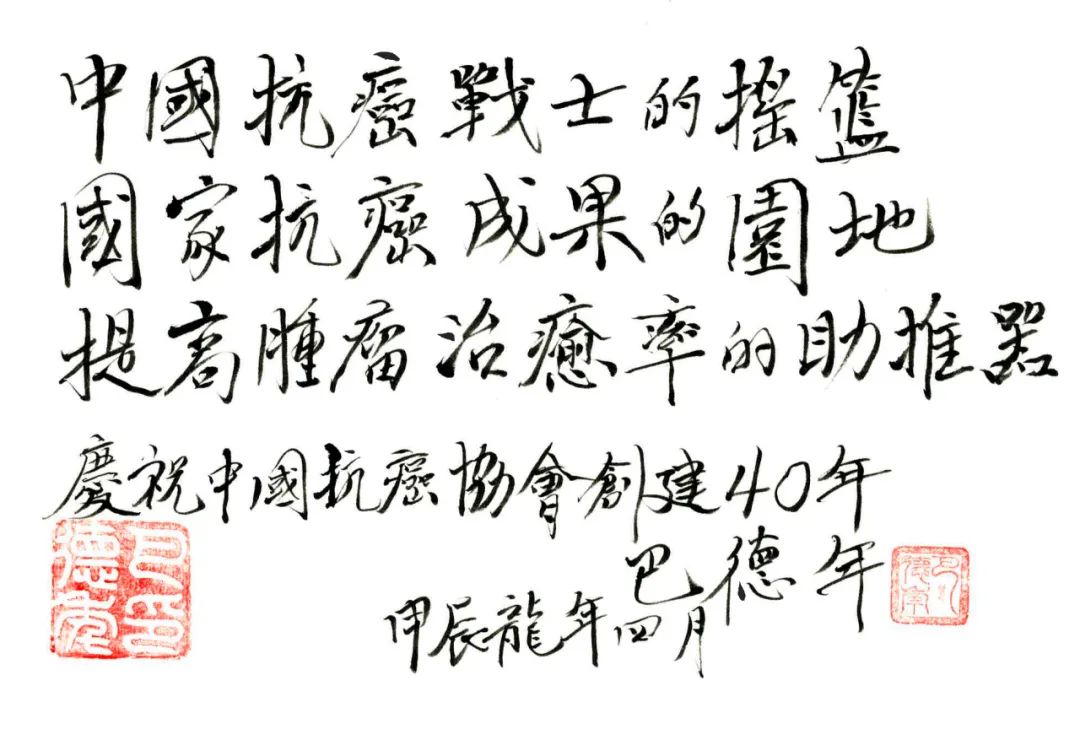 中國抗癌戰士的搖籃
國家抗癌成果的園地
提高腫瘤治癒率的助推器
慶祝中國抗癌協會創建40年
巴德年
甲辰龍年四月
巴德年印